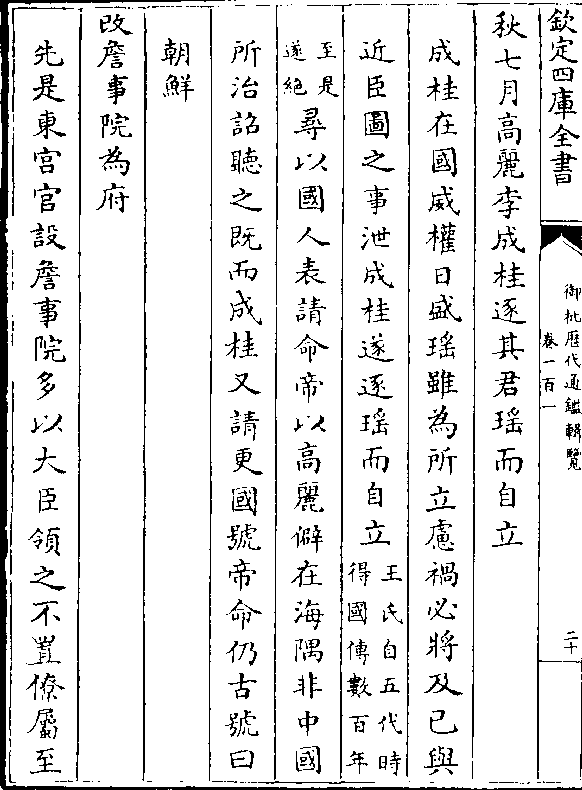 欽定四庫全書
御批歷代通鑑輯覽
卷一百一
二十
秋七月高麗李成桂逐其君瑤而自立
成桂在國威權日盛瑤雖為所立慮禍必將及已與
近臣圖之事泄成桂遂逐瑤而自立王氏自五代時得國傳數百年
至是遂絕尋以國人表請命帝以高麗僻在海隅非中國
所治詔聽之既而成桂又請更國號帝命仍古號曰
朝鮮
改詹事院為府
先是東宮官設詹事院多以大臣領之不置僚屬至